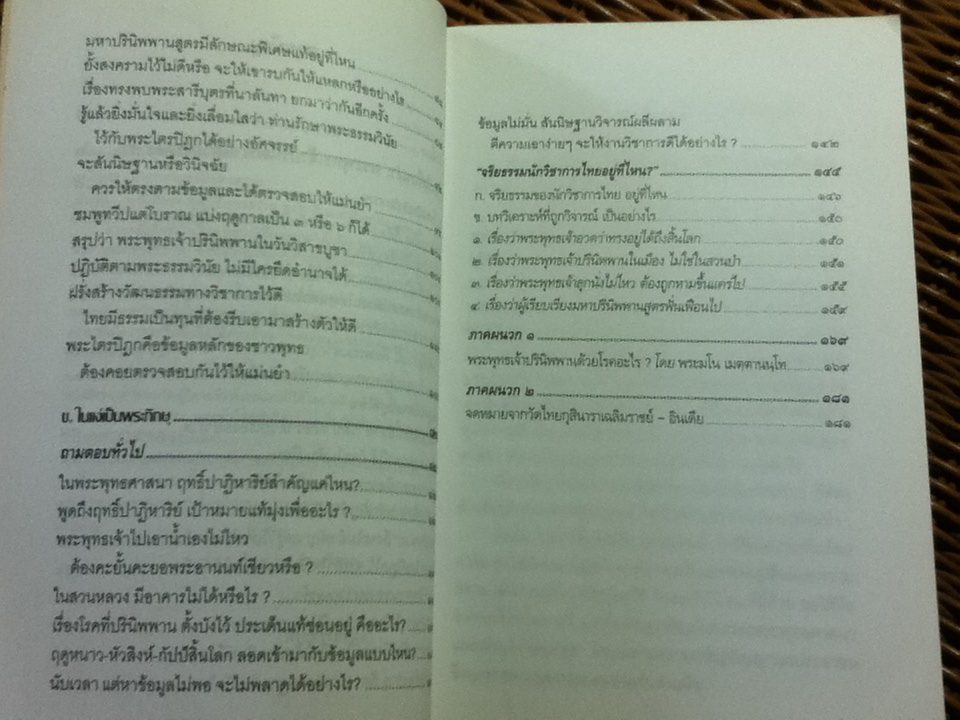 มหาปรินิพพานสูตรมีลักษณะพิเศษแท้อยู่ที่ไหน
ยั้งสงครามไว้ไม่ดีหรือ จะให้เขารบกันให้แหลกหรืออย่างไร
เรื่องทรงพบพระสารีบุตรที่นาลันทา ยกมาว่ากันอีกครั้ง
รู้แล้วยิ่งมั่นใจและยิ่งเลื่อมใสว่า ท่านรักษาพระธรรมวินัย
ไว้กับพระไตรปิฎกได้อย่างอัศจรรย์
จะสันนิษฐานหรือวินิจฉัย
ควรให้ตรงตามข้อมูลและได้ตรวจสอบให้แม่นยำ
ชมพูทวีปแต่โบราณ แบ่งฤดูกาลเป็น ๓ หรือ ๖ ก็ได้
สรุปว่า พระพุทธเจ้าปรินิพพานในวันวิสาขบูชา
ปฏิบัติตามพระธรรมวินัย ไม่มีใครยึดอำนาจได้
ฝรั่งสร้างวัฒนธรรมทางวิชาการไว้ดี
ไทยมีธรรมเป็นทุนที่ต้องรีบเอามาสร้างตัวให้ดี
พระไตรปิฎกคือข้อมูลหลักของชาวพุทธ
ต้องคอยตรวจสอบกันไว้ให้แม่นยำ
ข. ในแง่เป็นพระภิกษุ
ถามตอบทั่วไป
ในพระพุทธศาสนา ฤทธิ์ปาฏิหาริย์สำคัญแค่ไหน?
พูดถึงฤทธิ์ปาฏิหาริย์ เป้าหมายแท้มุ่งเพื่ออะไร ?
พระพุทธเจ้าไปเอาน้ำเองไม่ไหว
ต้องคะยั้นคะยอพระอานนท์เชียวหรือ ?
ในสวนหลวง มีอาคารไม่ได้หรือไร ?
เรื่องโรคที่ปรินิพพาน ตั้งบังไว้ ประเด็นแท้ซ่อนอยู่ คืออะไร?
ฤดูหนาว-หัวสิงห์-กัปป์สิ้นโลก ลอดเข้ามากับข้อมูลแบบไหน?
นับเวลา แต่หาข้อมูลไม่พอ จะไม่พลาดได้อย่างไร?
ข้อมูลไม่มัน สันนิษฐานวิจารณ์ผลีผลาม
ตีความเอาง่ายๆ จะให้งานวิชาการดีได้อย่างไร ? ๑๔๒
"จริยธรรมนักวิชาการไทยอยู่ที่ไหน?" ๑๔๕
ก. จริยธรรมของนักวิชาการไทย อยู่ที่ไหน ๑๔๖
ข. บทวิเคราะห์ที่ถูกวิจารณ์ เป็นอย่างไร ๑๕๐
๑. เรื่องว่าพระพุทธเจ้าอวดว่าทรงอยู่ได้ถึงสิ้นโลก ๑๕๐
๒. เรื่องว่าพระพุทธเจ้าปรินิพพานในเมือง ไม่ใช่ในสวนป่า ๑๕๑
๓. เรื่องว่าพระพุทธเจ้าลุกนั่งไม่ไหว ต้องถูกหามขึ้นแคร่ไป ๑๕๕
๔. เรื่องว่าผู้เรียบเรียงมหาปรินิพพานสูตรฟั่นเฟือนไป ๑๕๙
ภาคผนวก ๑ ๑๖๙
พระพุทธเจ้าปรินิพพานด้วยโรคอะไร ? โดย พระมโน เมตฺตานนฺโท ๑๖๙
ภาคผนวก ๒ ๑๘๑
จดหมายจากวัดไทยกุสินาราเฉลิมราชย์ – อินเดีย ๑๘๑